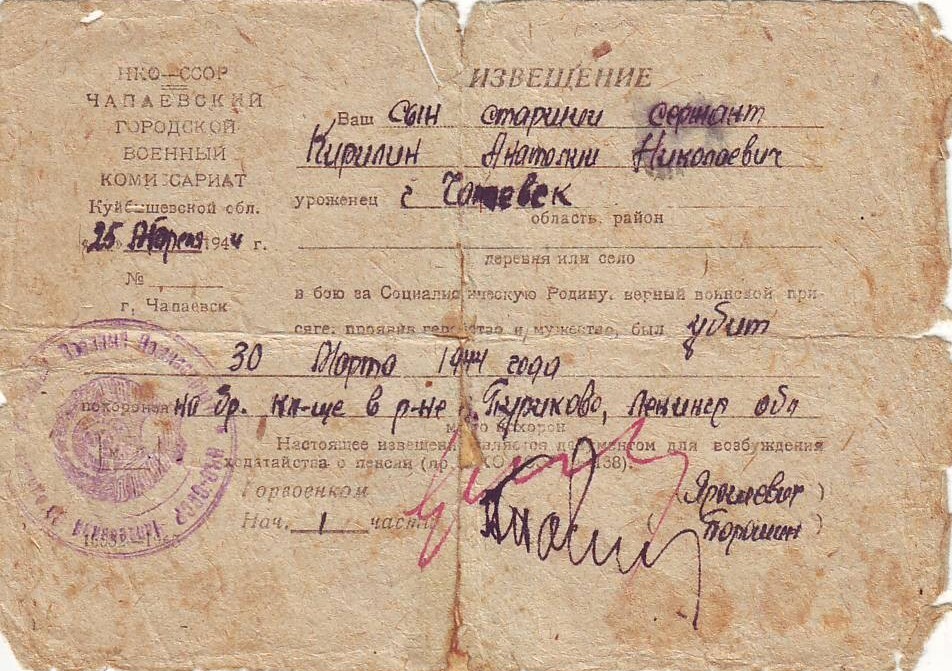 НКО—СССР
ЧАПАЕВСКИЙ
ГОРОДСКОЙ
ВОЕННЫЙ
КОМИССАРИАТ
Куйбышевской обл.
25 Апреля 1944 г.
№
г. Чапаевск
ИЗВЕЩЕНИЕ
Ваш сын старший сержант
Кирилин Анатолий Николаевич
уроженец г.
область, район
деревня или село
в бою за Социалистическую Родину, верный воинской при-
сяге, проявив геройство и мужество, был убит
30 Марта 1944 года
похоронен на бр. кл-ще в р-не Туриково, Ленингр обл
место похорон
Настоящее извещение является документом для возбуждения
ходатайства о пенсии
Горвоенком
Ярошевич )
Нач. 1 части
Порошин )